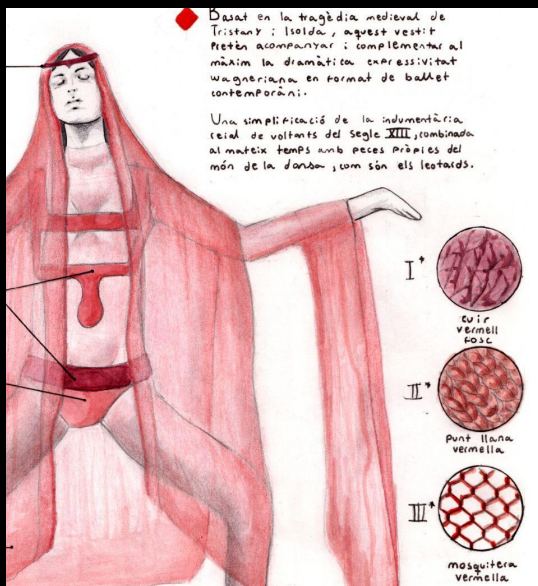 Basat en la tragèdia medieval de
Tristany i Isolda, aquest vestit
pretén acompanyar i complementar al
màxim la dramàtica expressivitat
wagneriana en format de ballet
contemporàni.
Una simplificació de la indumentària
reial de voltants del segle XIII, combinada
al mateix temps amb peces pròpies del
món de la dansa, com són els leotards.
I*
cuir
vermell
fosc
II*
punt llana
vermella
III*
mosquitera
vermella